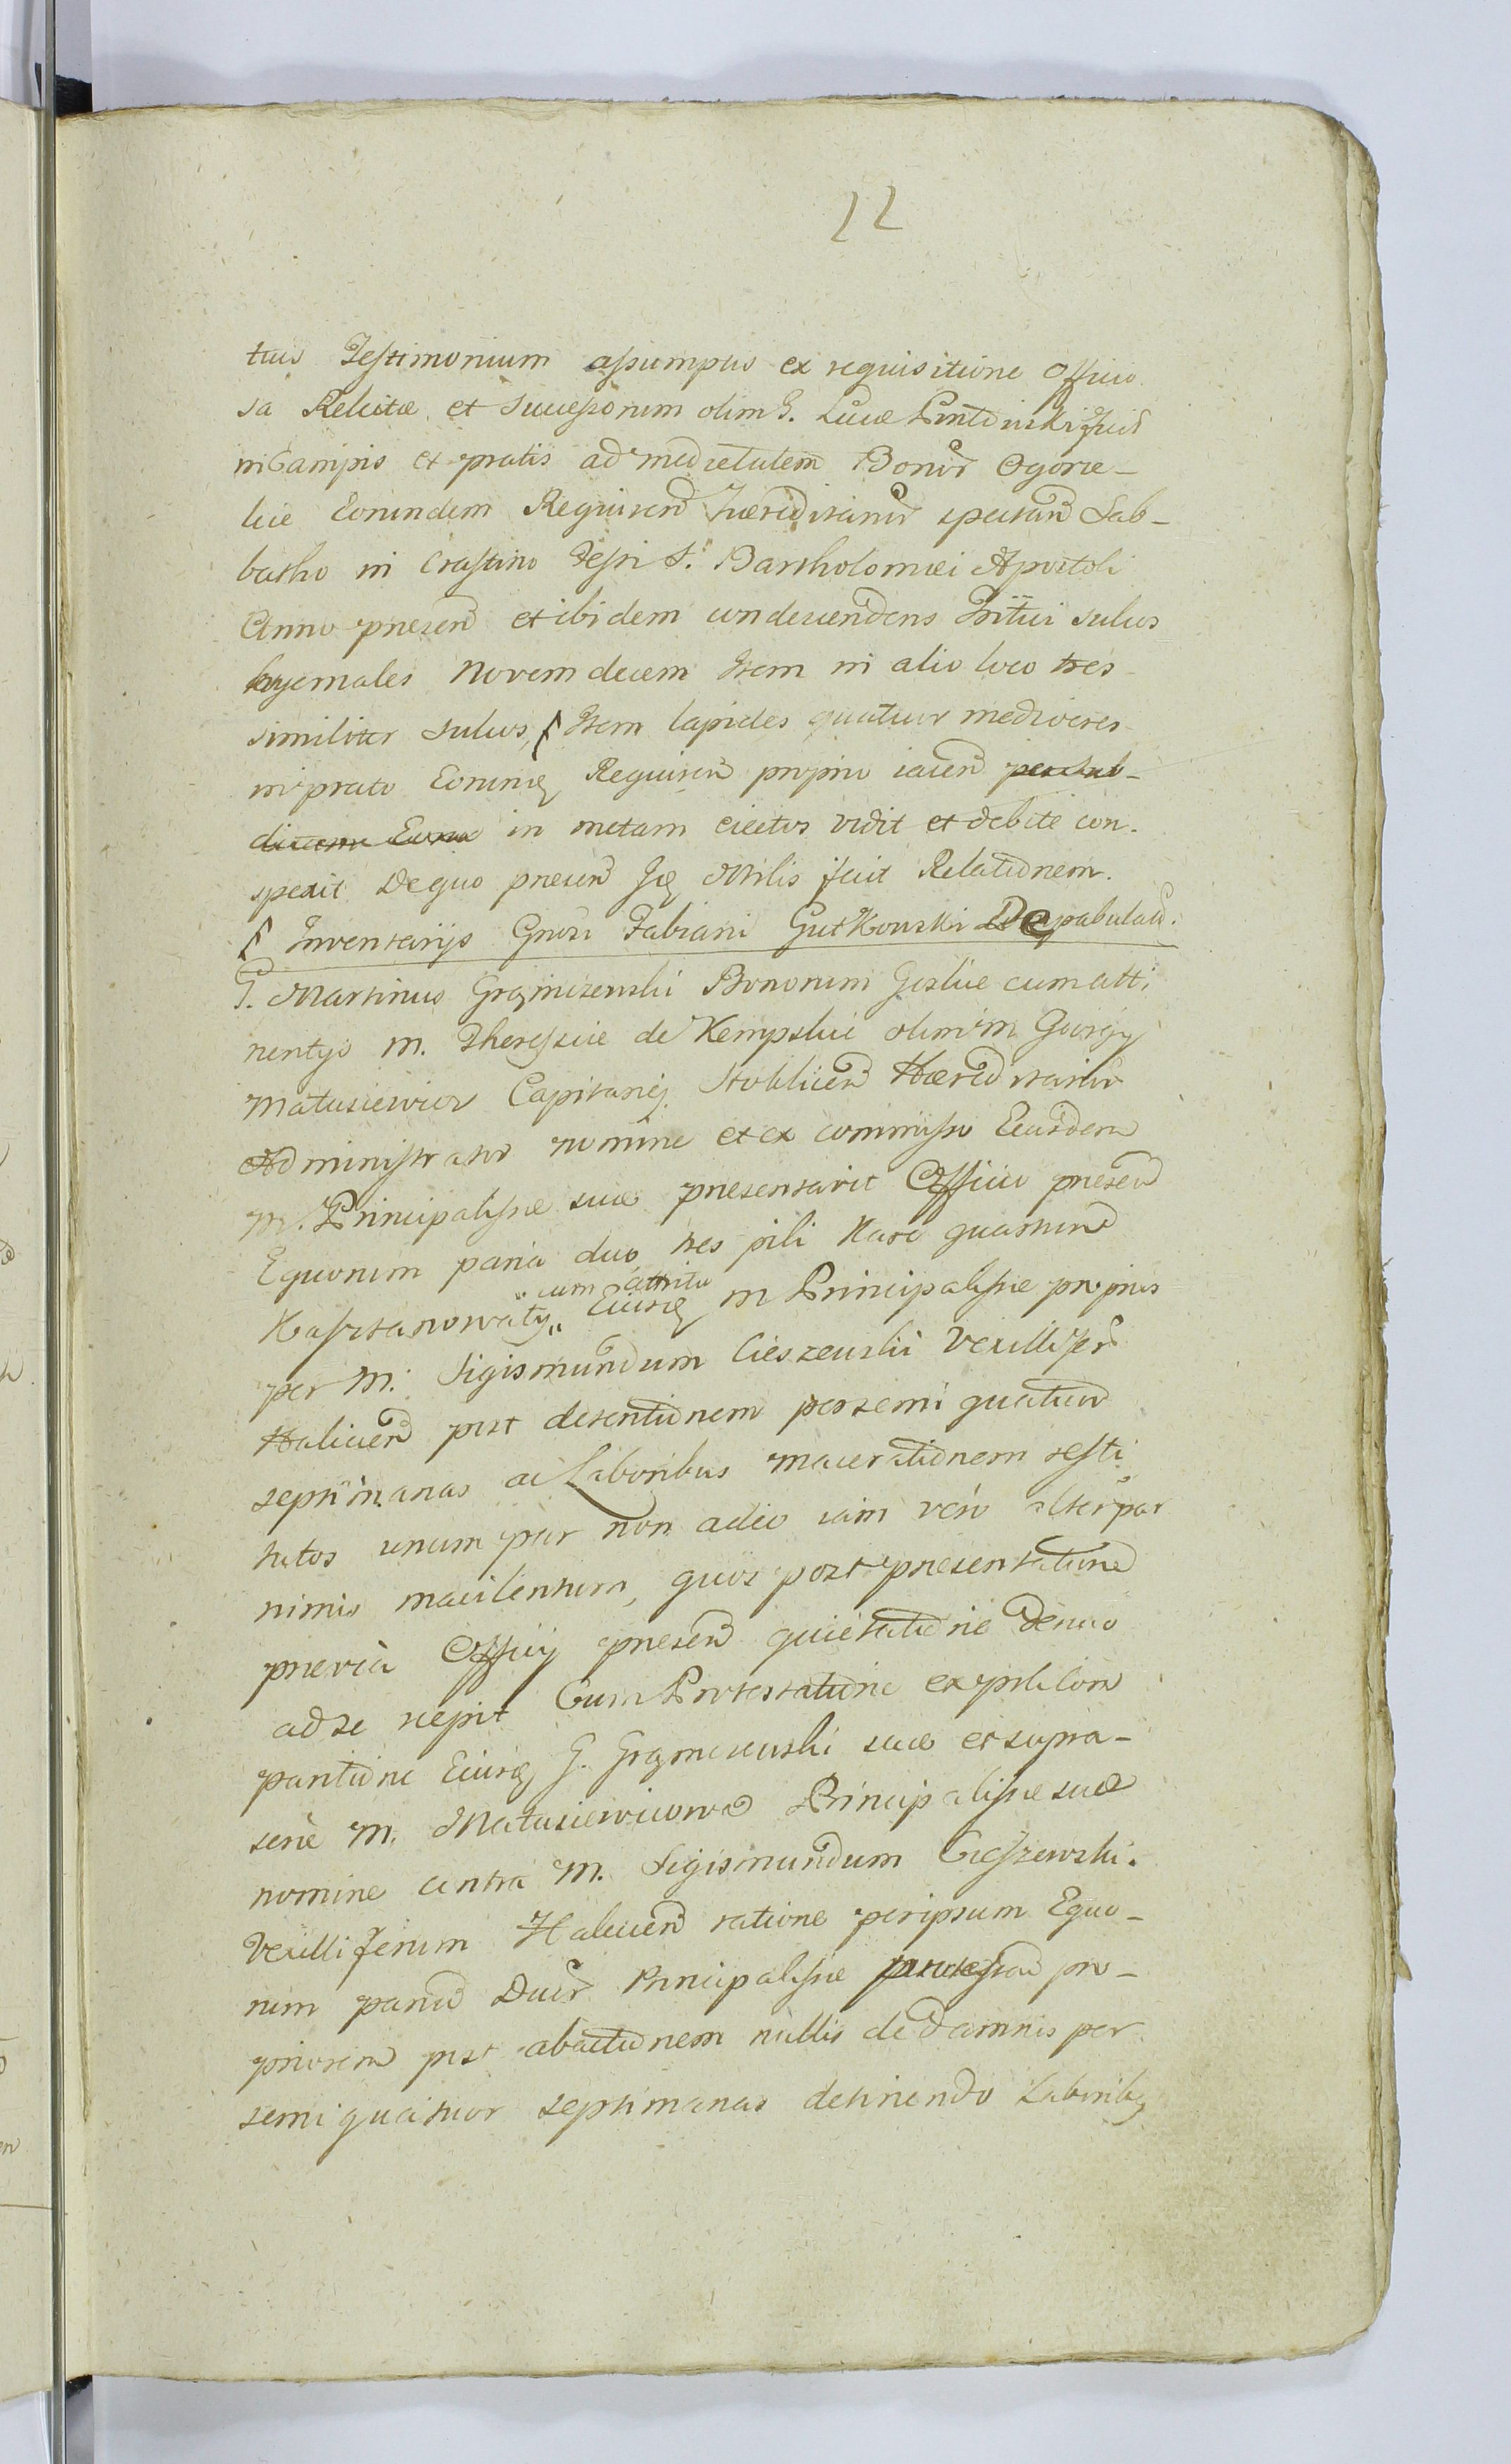 22
tus Testimonium assumptus ex requisitione Officio
sa Relictæ et Successorum olim G. Lucæ
in Campis et pratis ad medietatem Bonor Ogorze-
lice Eorundem Requiren Hæreditarior spectan Sab-
batho in Crastino Festi S. Bartholomæi Apostoli
Anno præsen et ibidem condescendens Tritici sulcos
hyemales Novemdecem Item in alio loco tres
similiter sulcos, Item lapides quatuor mediocres
in prato Eorundq Requiren proprio iacen
in metam eiectos vidit et debite con-
spexit De quo præsen Idq Milis fecit Relationem.
Inventarijs Grosi Fabiani Gutkowski Depabulatis.
G. Martinus Grzymiszewski Bonorum Goslice cum atti-
nentijs M. Theressiæ de Kempskie olim M. Georgij
Matusiewicz Capitanej Stoklicen Hæreditarior
Administrator nomine et ex commisso Eiusdem
M. Principalissæ suæ præsentavit Officio præsen
Equorum paria duo, tres pili Kare quartum
Kasztanowaty „ Eiusdq M Principalissæ proprios
„ cum attritu
per M. Sigismundum Cieszewski Vexillifer
Halicien post detentionem per semi quatuor
septimanas ac Laboribus macerationem resti
tutos unum par non adeo iam vero alter par
nimis macilentum, quos post præsentatione
prævia Officij præsen quietatione denuo
ad se recepit Cum Protestatione ex
paritione Eiusdq G. Grzymiszewski suæ et supra-
scriptæ M. Matusiewiczowa Principalissæ suæ
nomine contra M. Sigismundum Cieszewski.
Vexilliferum Halicien ratione per ipsum Equo-
rum parium Duor Principalissæ pro-
priorum post abactionem nullis de damnis per
semi quatuor septimanas detinendo Laboribq